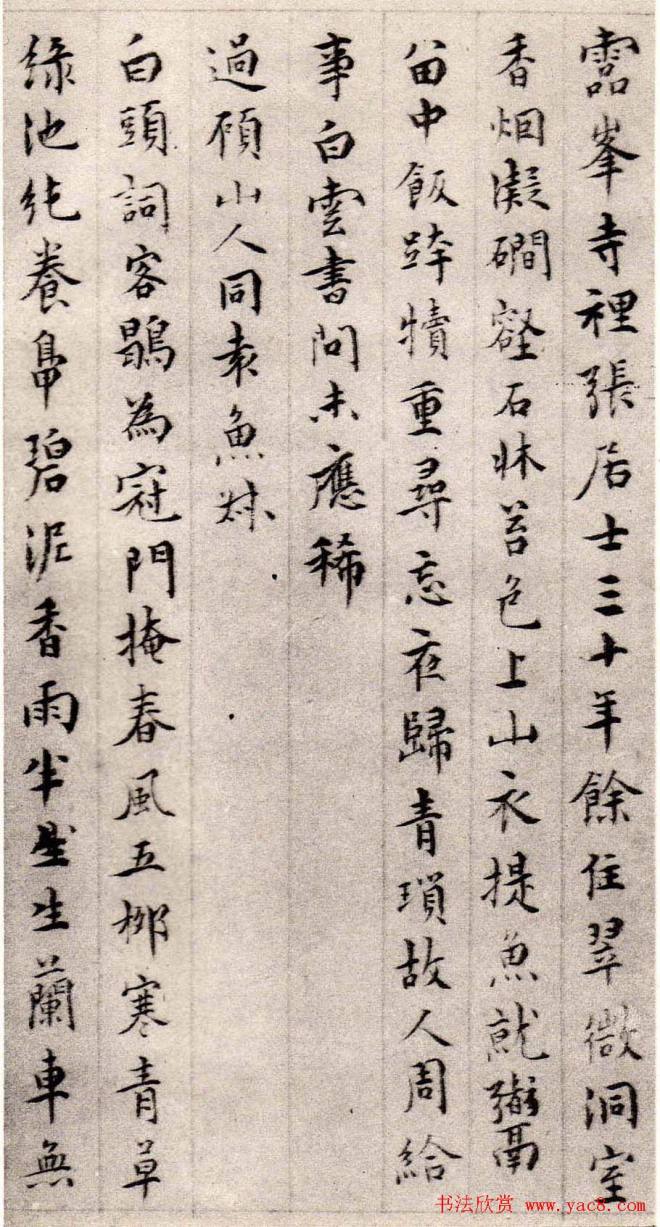 靈峯寺裡張居士三十年餘住翠微洞室
香烟凝磵壑石牀苔色上山衣提魚就
畱中飯跨犢重尋忘夜歸青瑣故人周給
事白雲書問未應稀
過碩山人同袁魚
白頭詞客鶡為冠門掩春風五柳寒青草
綠池純養碧泥香雨半生蘭車無
书法欣赏 www.yac8.com